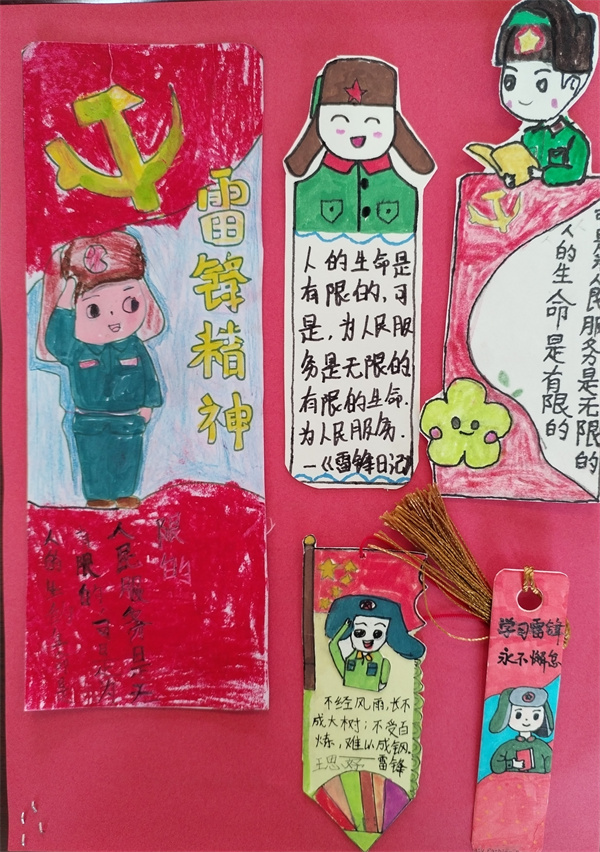 雷锋精神
限的
人民服务是无
有限的,可是为
人的生命是
人的生命是
有限的,可
是,为人民服
务是无限的
有限的生命.
为人民服务.
—《雷锋日记》
可是为人民服务是无限的
人的生命是有限的
不经风雨,长不
成大树;不受百
炼,难以成钢。
王思妤 雷锋
学习雷锋
永不懈怠